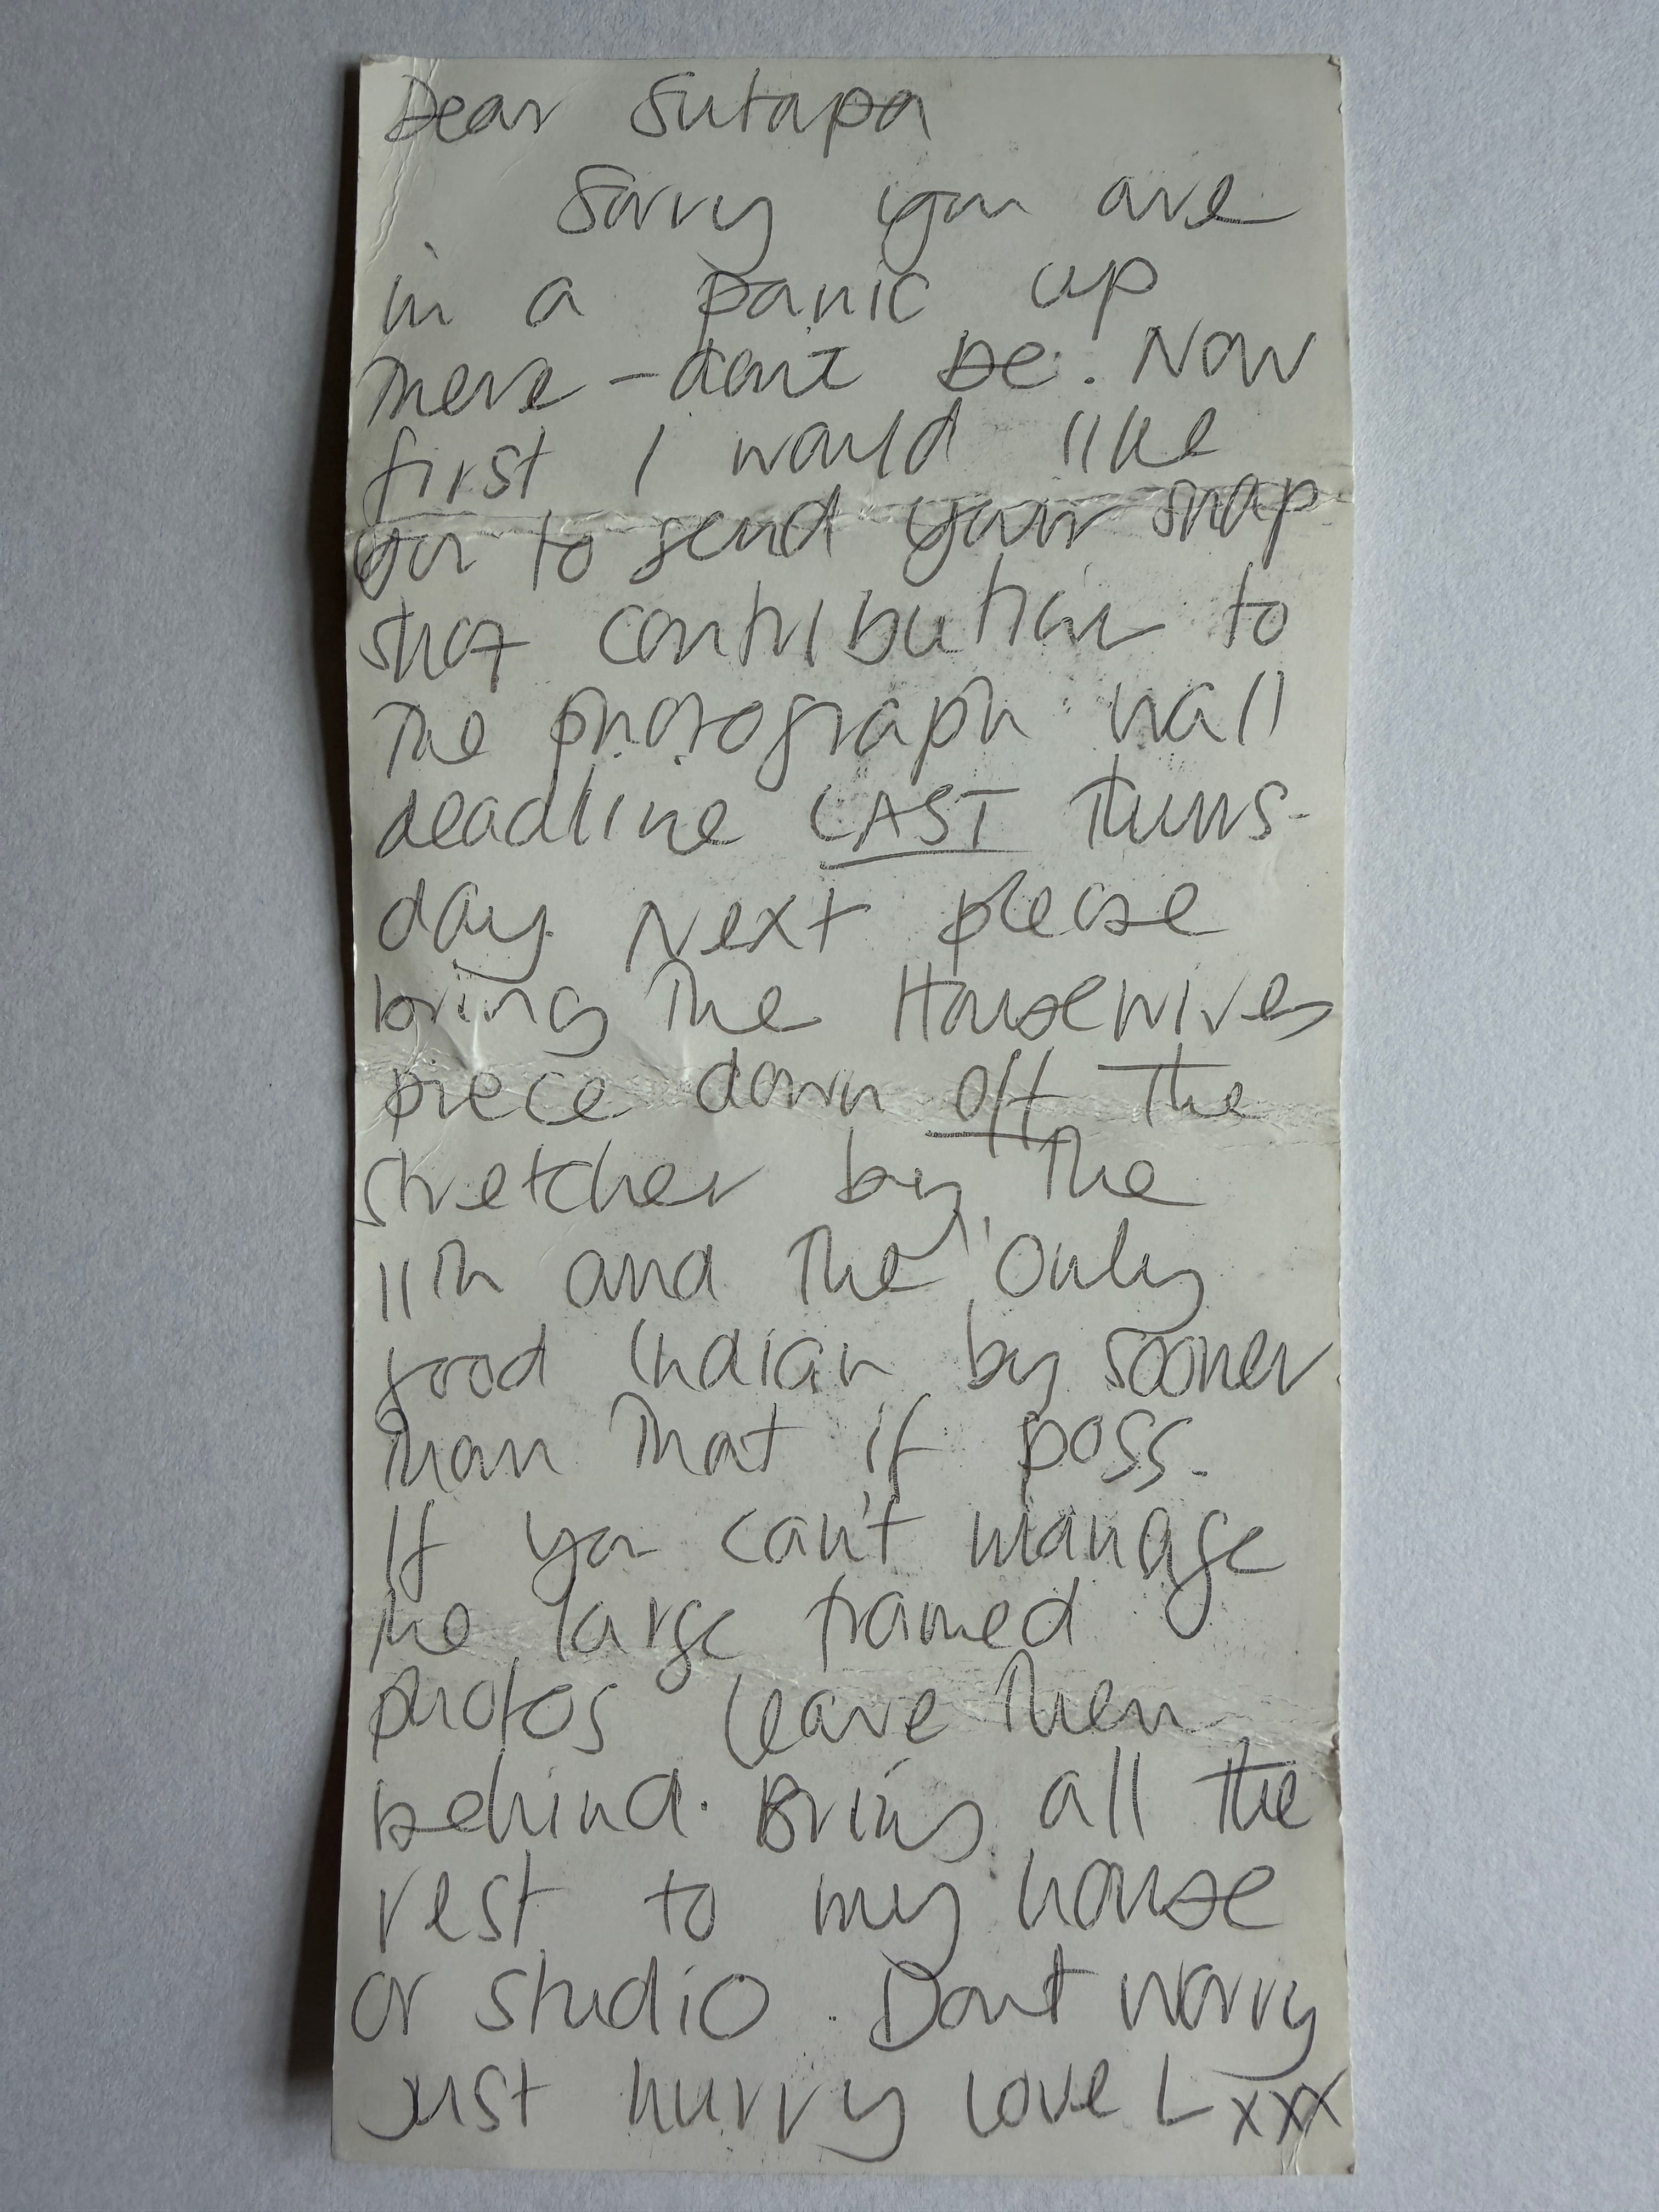 Dear Sutapa
Sorry you are
in a panic up
there - dont be. Now
first I would like
you to send your snap
shot contribution to
the photograph wall
deadline LAST Thurs-
day. Next please
bring the Housewives
piece down off the
stretcher by the
11th and the "Only
good Indian by sooner
than that if poss.
If you can't manage
the large framed
photos leave them
behind. Bring all the
rest to my house
or studio. Dont worry
just hurry love L xxx